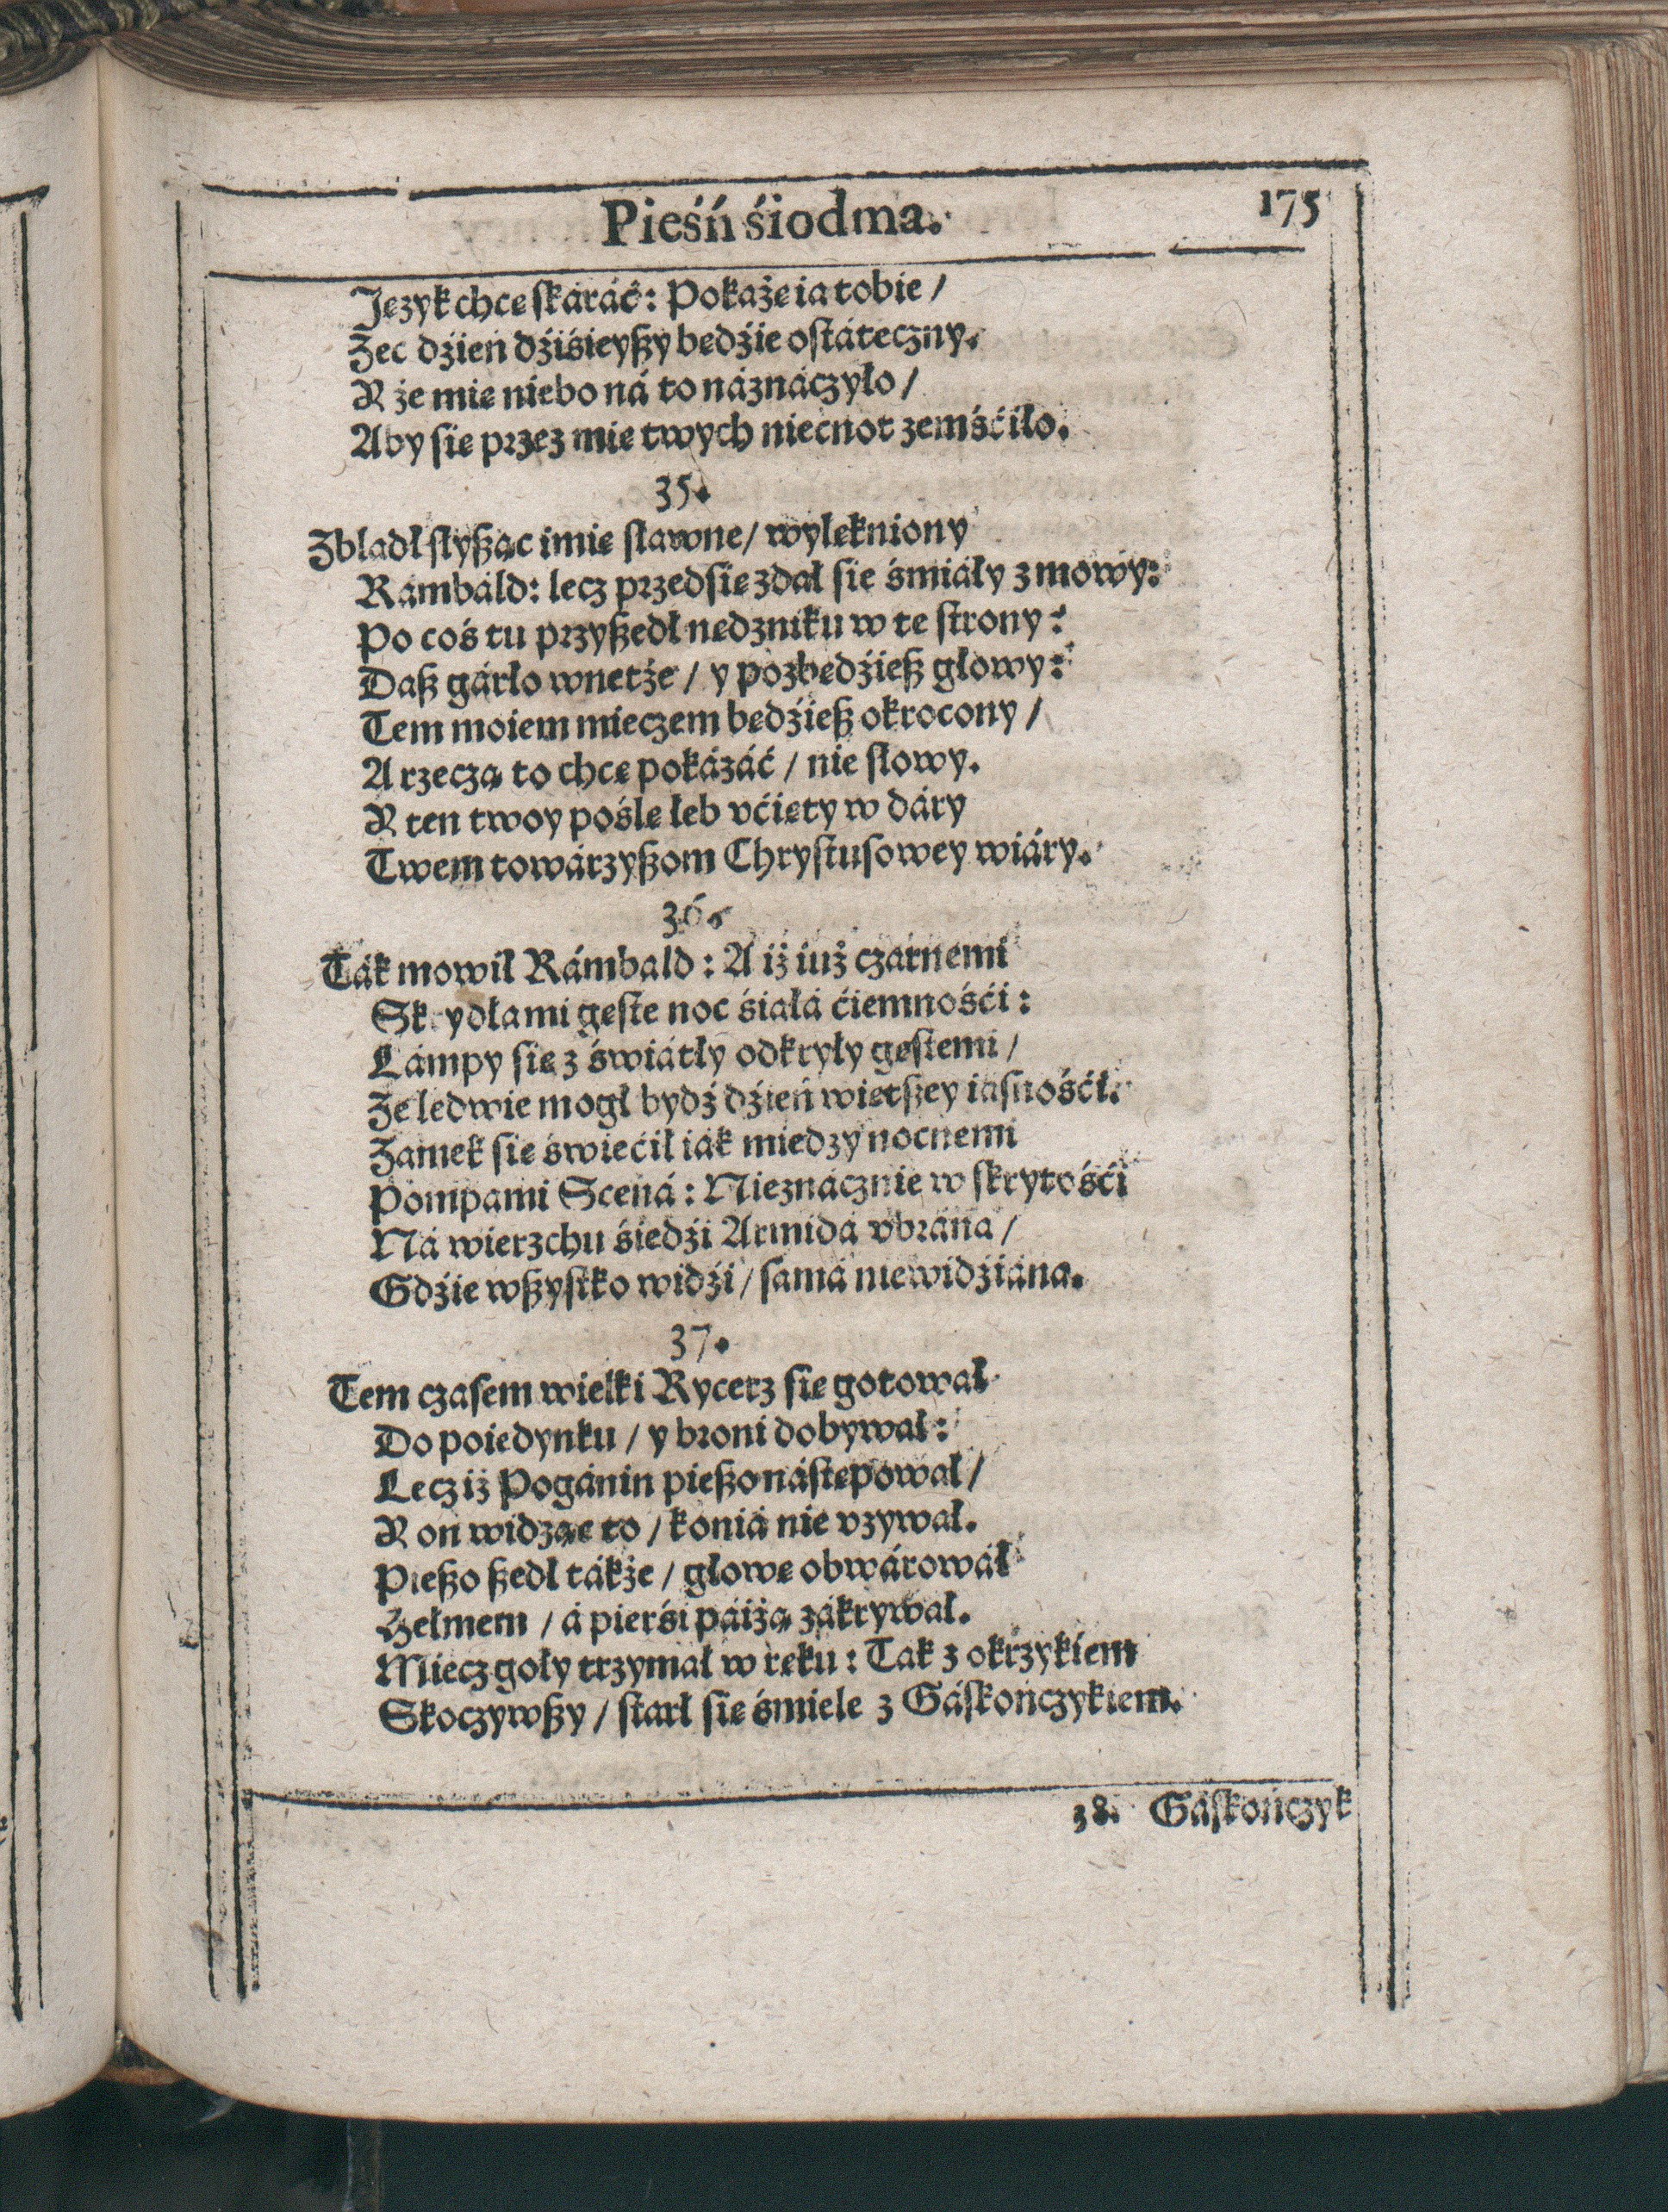 Pieśń śiodma. 175
Język chcę skáráć: Pokażę ia tobie /
Żeć dźień dźiśieyßy będźie ostáteczny.
Y że mię niebo ná to náznáczyło /
Aby się przez mię twych niecnot zemśćiło.
35.
Zbladł słyßąc imię sławne / wylękniony
Rámbáld: lecz przedsię zdał się śmiáły z mowy:
Po coś tu przyßedł nędzniku w te strony:
Daß gárło wnetże / y pozbędźieß głowy:
Tem moiem mieczem będźieß okrocony /
A rzeczą to chcę pokázáć / nie słowy.
Y ten twoy poślę łeb vćięty w dáry
Twem towárzyßom Chrystusowey wiáry.
36.
Ták mowił Rámbald: A iż iuż czarnemi
Skrzydłami gęste noc śiałá ćiemnośći:
Lámpy się z świátły odkryły gęstemi /
Że ledwie mogł bydź dźień więtßey iásnośći.
Zamek się świećił iák między nocnemi
Pompami Scená: Nieznácznie w skrytośći
Ná wierzchu śiedźi Armidá vbrána /
Gdźie wßystko widźi / samá niewidźiána.
37.
Tem czasem wielki Rycerz się gotował
Do poiedynku / y broni dobywał:
Lecz iż Pogánin pießo nástępował /
Y on widząc to / koniá nie vzywał.
Pießo ßedł tákże / głowę obwárował
Hełmem / á pierśi páiżą zákrywał.
Miecz goły trzymał w ręku: Tak z okrzykiem
Skoczywßy / starł się śmiele z Gáskończykiem.
38. Gáskończyk